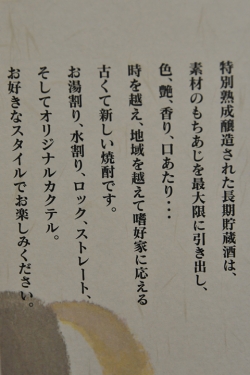 特別熟成醸造された長期貯蔵酒は、
素材のもちあじを最大限に引き出し、
色、艶、香り、口あたり・・・
時を越え、地域を越えて嗜好家に応える
古くて新しい焼酎です。
お湯割り、水割り、ロック、ストレート、
そしてオリジナルカクテル。
お好きなスタイルでお楽しみください。